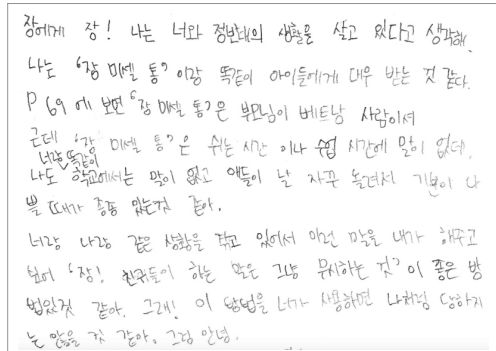 장에게 장! 나는 너와 정반대의 생활을 살고 있다고 생각해.
나는 '장 미셸 통'이랑 똑같이 아이들에게 대우 받는 것 같다.
P 69 에 보면 '장 미셸 통'은 부모님이 베트남 사람이셔
근데 '장 미셸 통'은 쉬는 시간 이나 수업 시간에 말이 없데.
너랑 똑같이
나도 학교에서는 말이 없고 애들이 날 자꾸 놀려서 기분이 나
쁠 때가 종종 있는것 같아.
너랑 나랑 같은 상황을 겪고 있어서 이런 말을 내가 해주고
싶어 '장! 친구들이 하는 말은 그냥 무시하는 것'이 좋은 방
법있것 같아. 그래! 이 방법을 너가 사용하면 나처럼 당하지
는 않을 것 같아. 그럼 안녕.